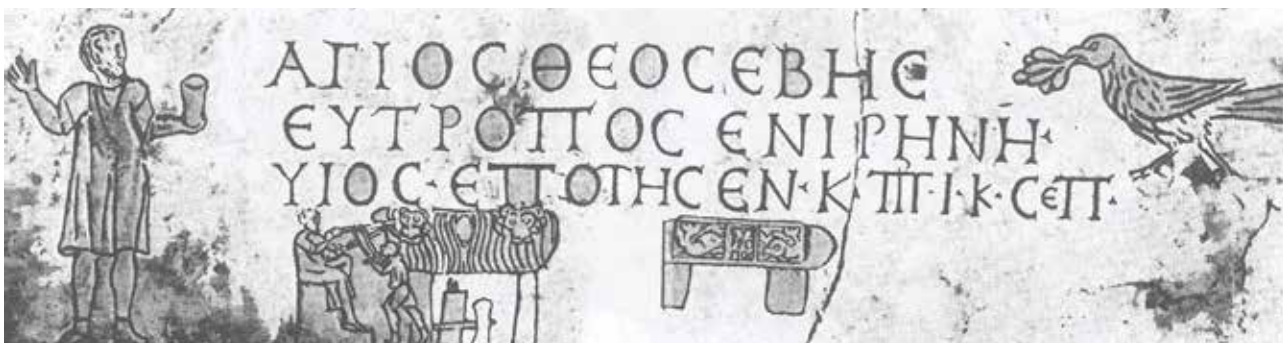 ΑΓΙΟϹ ΘΕΟϹΕΒΗϹ
ΕΥΤΡΟΠΟϹ ΕΝΙΡΗΝΗ·
ΥΙΟϹ·ΕΠΟΤΗϹΕΝ·Κ·ΠΠ·Ι·Κ·ϹΕΠ·